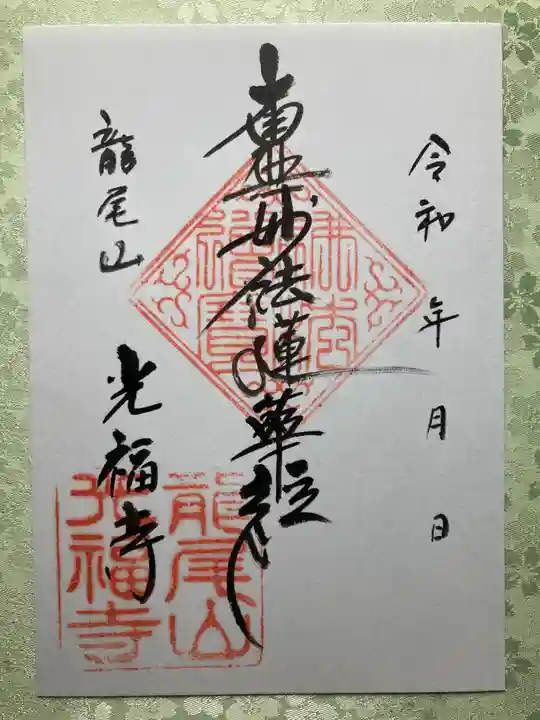 令和 年 月 日
南無妙法蓮華経
龍尾山 光福寺
佛法僧寶
龍尾山
光福寺